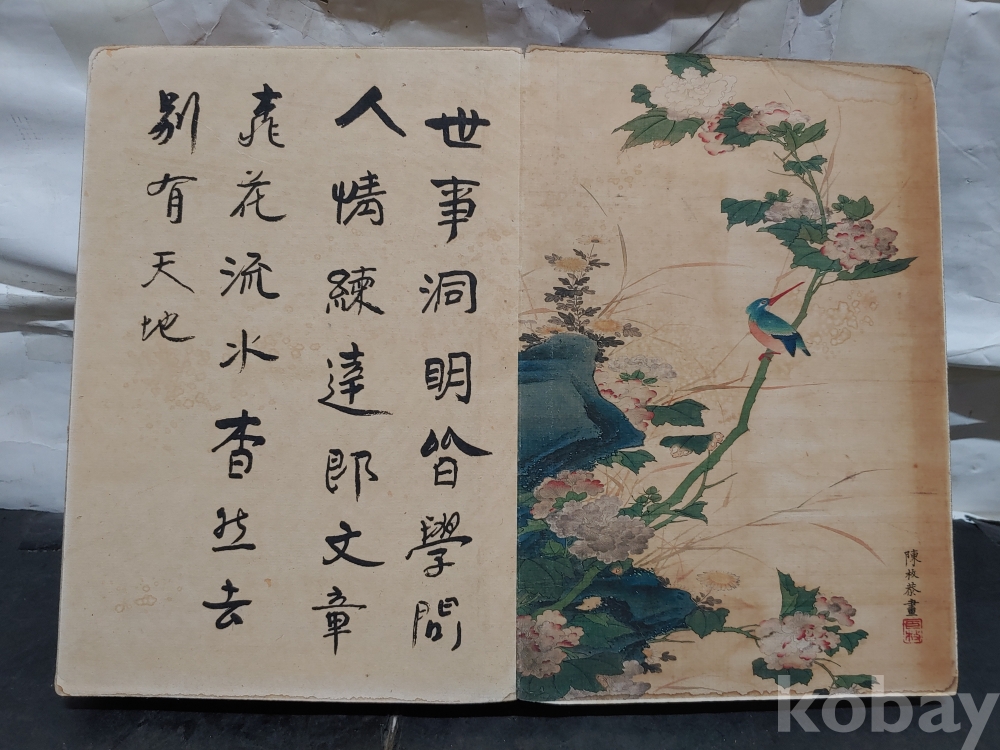 陳枚恭畫
世事洞明皆學問
人情練達即文章
桃花流水杳然去
別有天地
kobay